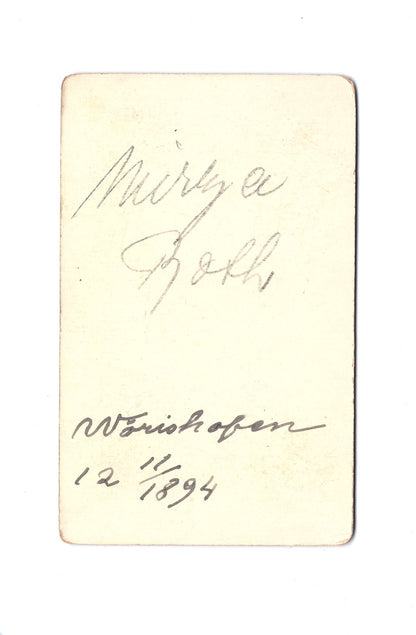 Mirza
Roth
Wörishofen
12 11/1894